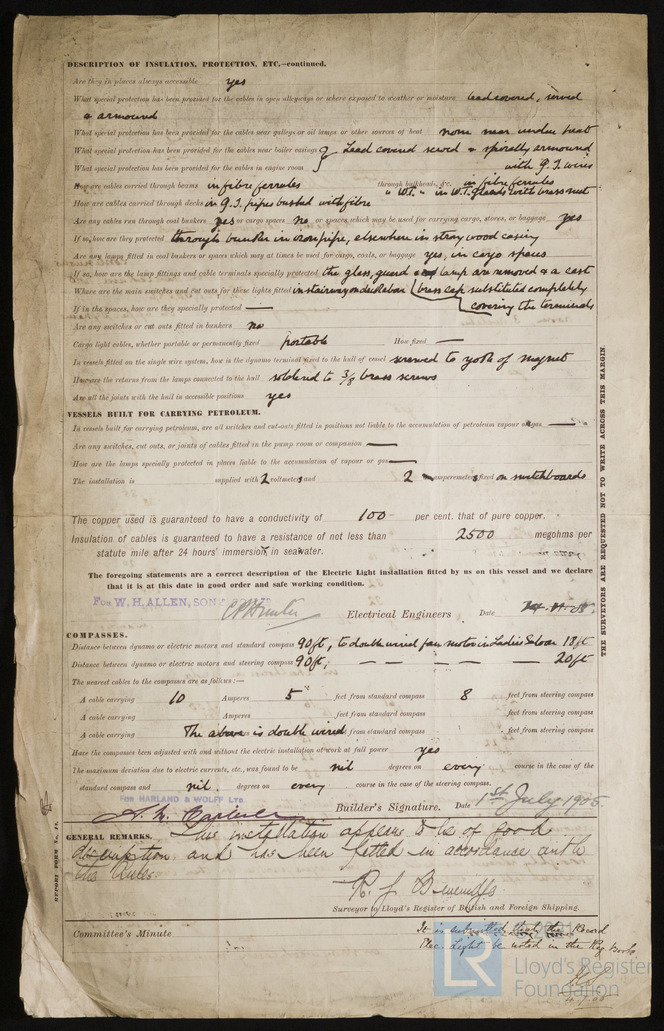 DESCRIPTION OF INSULATION, PROTECTION, ETC.—continued.
Are they in places always accessible yes
What special protection has been provided for the cables in open alleyways or where exposed to weather or moisture lead covered, served
& armoured
What special protection has been provided for the cables near galleys or oil lamps or other sources of heat none near undue heat
What special protection has been provided for the cables near boiler casings } Lead covered served & spirally armoured
What special protection has been provided for the cables in engine room with G.I. wires
How are cables carried through beams in fibre ferrules through bulkheads, &c. in fibre ferrules
" W.T. " in W.T. glands with brass nut
How are cables carried through decks in G.I. pipes bushed with fibre
Are any cables run through coal bunkers yes or cargo spaces no or spaces which may be used for carrying cargo, stores, or baggage yes
If so, how are they protected through bunker in iron pipe, elsewhere in strong wood casing
Are any lamps fitted in coal bunkers or spaces which may at times be used for cargo, coals, or baggage yes, in cargo spaces
If so, how are the lamp fittings and cable terminals specially protected the glass, guard & lamp are removed & a cast
Where are the main switches and cut outs for these lights fitted in stairway on deck above brass cap substituted completely
covering the terminals
If in the spaces, how are they specially protected —
Are any switches or cut outs fitted in bunkers no
Cargo light cables, whether portable or permanently fixed portable How fixed —
In vessels fitted on the single wire system, how is the dynamo terminal fixed to the hull of vessel screwed to yoke of magnet
How are the returns from the lamps connected to the hull soldered to 3/8 brass screws
Are all the joints with the hull in accessible positions yes
VESSELS BUILT FOR CARRYING PETROLEUM.
In vessels built for carrying petroleum, are all switches and cut-outs fitted in positions not liable to the accumulation of petroleum vapour or gas —
Are any switches, cut outs, or joints of cables fitted in the pump room or companion —
How are the lamps specially protected in places liable to the accumulation of vapour or gas —
The installation is supplied with 2 voltmeters and 2 amperemeters fixed on switchboards
The copper used is guaranteed to have a conductivity of 100 per cent. that of pure copper.
Insulation of cables is guaranteed to have a resistance of not less than 2500 megohms per
statute mile after 24 hours' immersion in seawater.
The foregoing statements are a correct description of the Electric Light installation fitted by us on this vessel and we declare
that it is at this date in good order and safe working condition.
FOR W. H. ALLEN, SON & CO. LTD
Electrical Engineers Date
COMPASSES.
Distance between dynamo or electric motors and standard compass 90 ft, to double wired fan motor in Ladies Saloon 18 ft
Distance between dynamo or electric motors and steering compass 90 ft, — — — — 20 ft
The nearest cables to the compasses are as follows:—
A cable carrying 10 Amperes 5 feet from standard compass 8 feet from steering compass
A cable carrying Amperes feet from standard compass feet from steering compass
A cable carrying The above is double wired from standard compass feet from steering compass
Have the compasses been adjusted with and without the electric installation at work at full power yes
The maximum deviation due to electric currents, etc., was found to be nil degrees on every course in the case of the
standard compass and nil degrees on every course in the case of the steering compass.
FOR HARLAND & WOLFF LTD.
Builder's Signature. Date 1st July 1905.
GENERAL REMARKS. This installation appears to be of good
description and has been fitted in accordance with
the Rules.
Surveyor to Lloyd's Register of British and Foreign Shipping.
Committee's Minute
It is submitted that the Record
Elec. Light be noted in the Reg. Book.
THE SURVEYORS ARE REQUESTED NOT TO WRITE ACROSS THIS MARGIN.
LR Lloyd's Register
Foundation